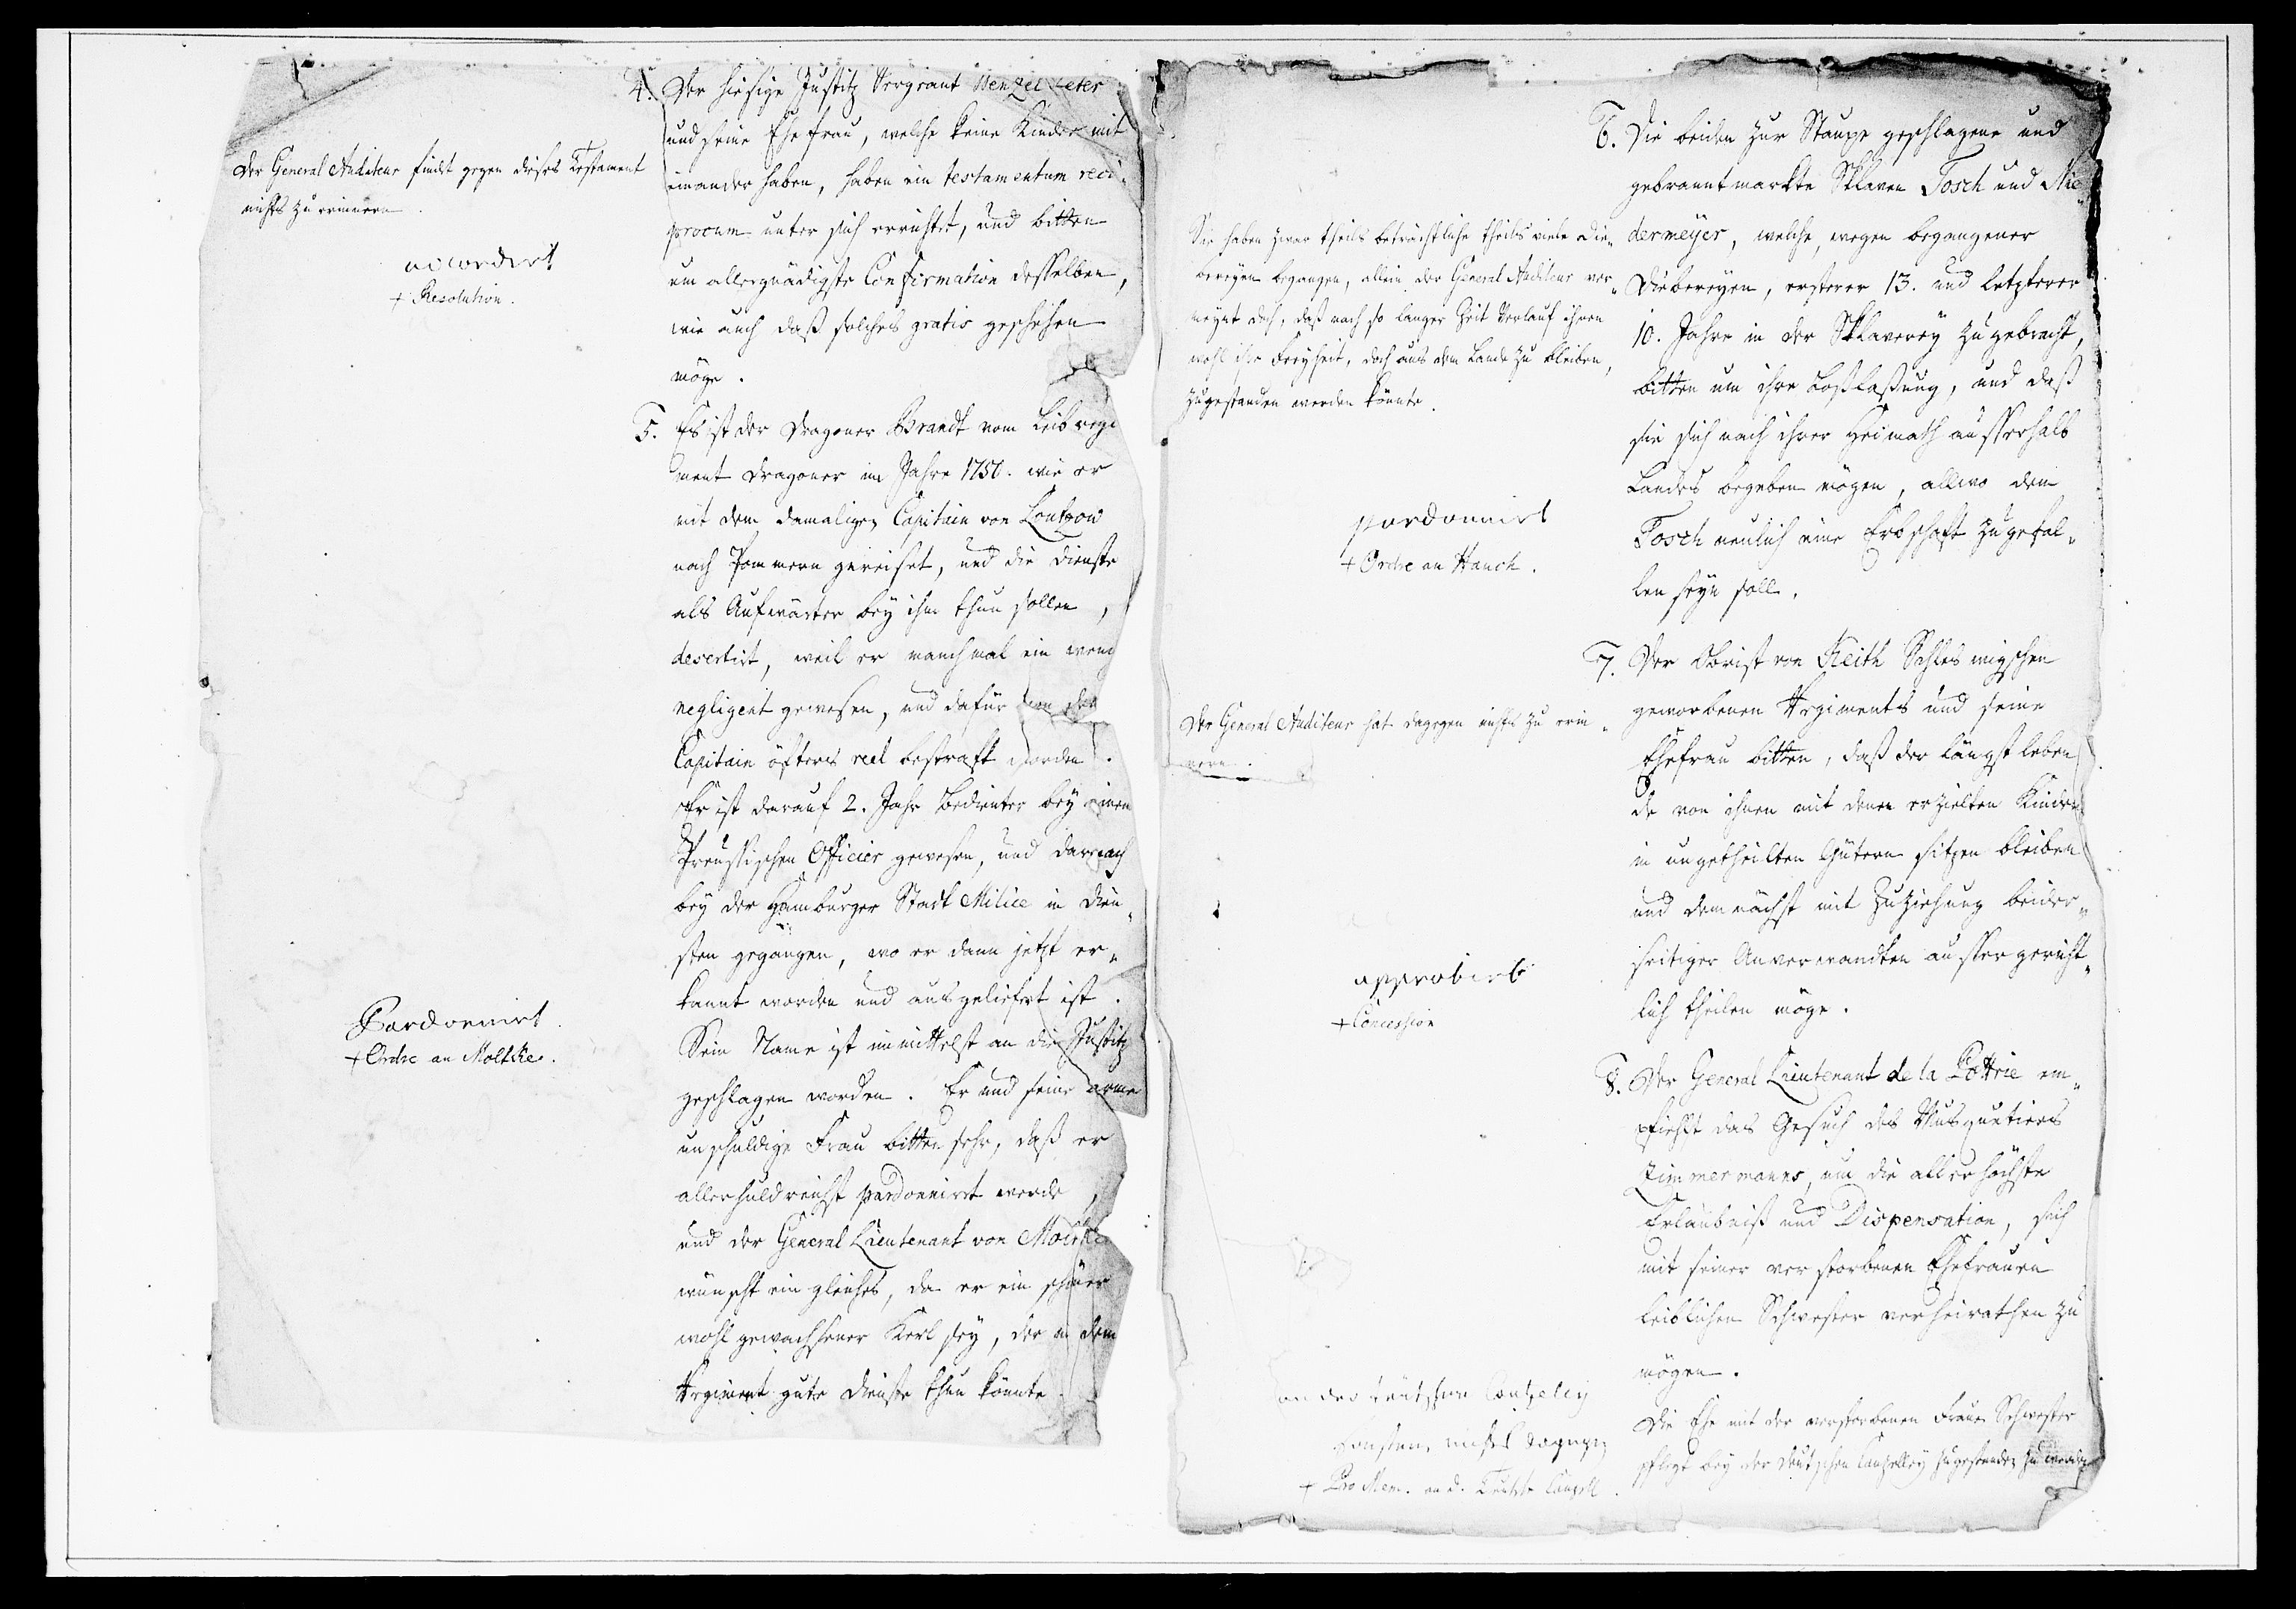 4. Der hiesige Justitz Sergeant Wenzel Peter
und seine Ehefrau, welche keine Kinder mit
einander haben, haben ein testamentum reci-
procum unter sich errichtet, und bitten
um allergnädigste Confirmation desselben,
wie auch daß solches gratis geschehen
möge.
Der General Auditeur findet gegen dieses Testament
nichts zu erinnern.
accordirt
+ Resolution.
5. Es ist der Dragoner Brandt vom Leib regi
ment Dragoner im Jahre 1757. wie er
mit dem damaligen Capitain von Lontzow
nach Pommern gereiset, und die Dienste
als Aufwärter bey ihm thun sollen,
desertirt, weil er manchmal ein wenig
negligent gewesen, und dafür von dem
Capitain öfters reel bestraft worden.
Er ist darauf 2. Jahr Bedienter bey einem
Preussischen Officier gewesen, und darnach
bey der Hamburger Stadt Milice in Dien-
sten gegangen, wo er dann jetzt er-
kannt worden und ausgeliefert ist.
Sein Name ist inmittelst an die Justitz
geschlagen worden. Er und seine arme
unschuldige Frau bitten sehr, daß er
allerhuldreichst pardonnirt werde,
und der General Lieutenant von Moltke
wünscht ein gleiches, da er ein schöner
wohl gewachsener Kerl sey, der bey dem
Regiment gute Dienste thun könnte.
Pardonnirt.
+ Ordre an Moltke.
6. Die beiden zur Staupe geschlagene und
gebranntmarkte Sklaven Tosch und Nie-
dermeyer, welche, wegen begangener
Diebereyen, ersterer 13. und letzterer
10. Jahre in der Sklaverey zugebracht,
bitten um ihre Loßlaßung, und daß
sie sich nach ihrer Heimath ausserhalb
Landes begeben mögen, allwo dem
Tosch neulich eine Erbschaft zugefal-
len seyn soll.
Sie haben zwar theils beträchtliche theils viele Die-
bereyen begangen, allein der General Auditeur ver-
meynt doch, daß nach so langer Zeit Verlauf ihnen
wohl ihre Freyheit, doch aus dem Lande zu bleiben,
zugestanden werden könnte.
pardonnirt
+ Ordre an Hauch.
7. Der Obrist von Keith Schleswigschen
geworbenen Regiments und seine
Ehefrau bitten, daß der längst leben
de von ihnen mit denen erzielten Kindern
in ungetheilten Gütern sitzen bleiben
und demnächst mit Zuziehung beider-
seitiger Anverwandten aussergericht-
lich theilen möge.
Der General Auditeur hat dagegen nichts zu erin-
nern.
approbirt
+ Concession
8. Der General Lieutenant de la Pottrie em-
pfiehlt das Gesuch des Musquetiers
Zimmermanns, um die allerhöchste
Erlaubniß und Dispensation, sich
mit seiner verstorbenen Ehefrauen
leiblichen Schwester verheirathen zu
mögen.
Die Ehe mit der verstorbenen Frauen Schwester
pflegt bey der deutschen Cantzelley zugestanden zu werden
an der teutschen Cantzeley
sonsten nichts dagegen
+ Pro Mem. an d. Teutsche Cantzell.